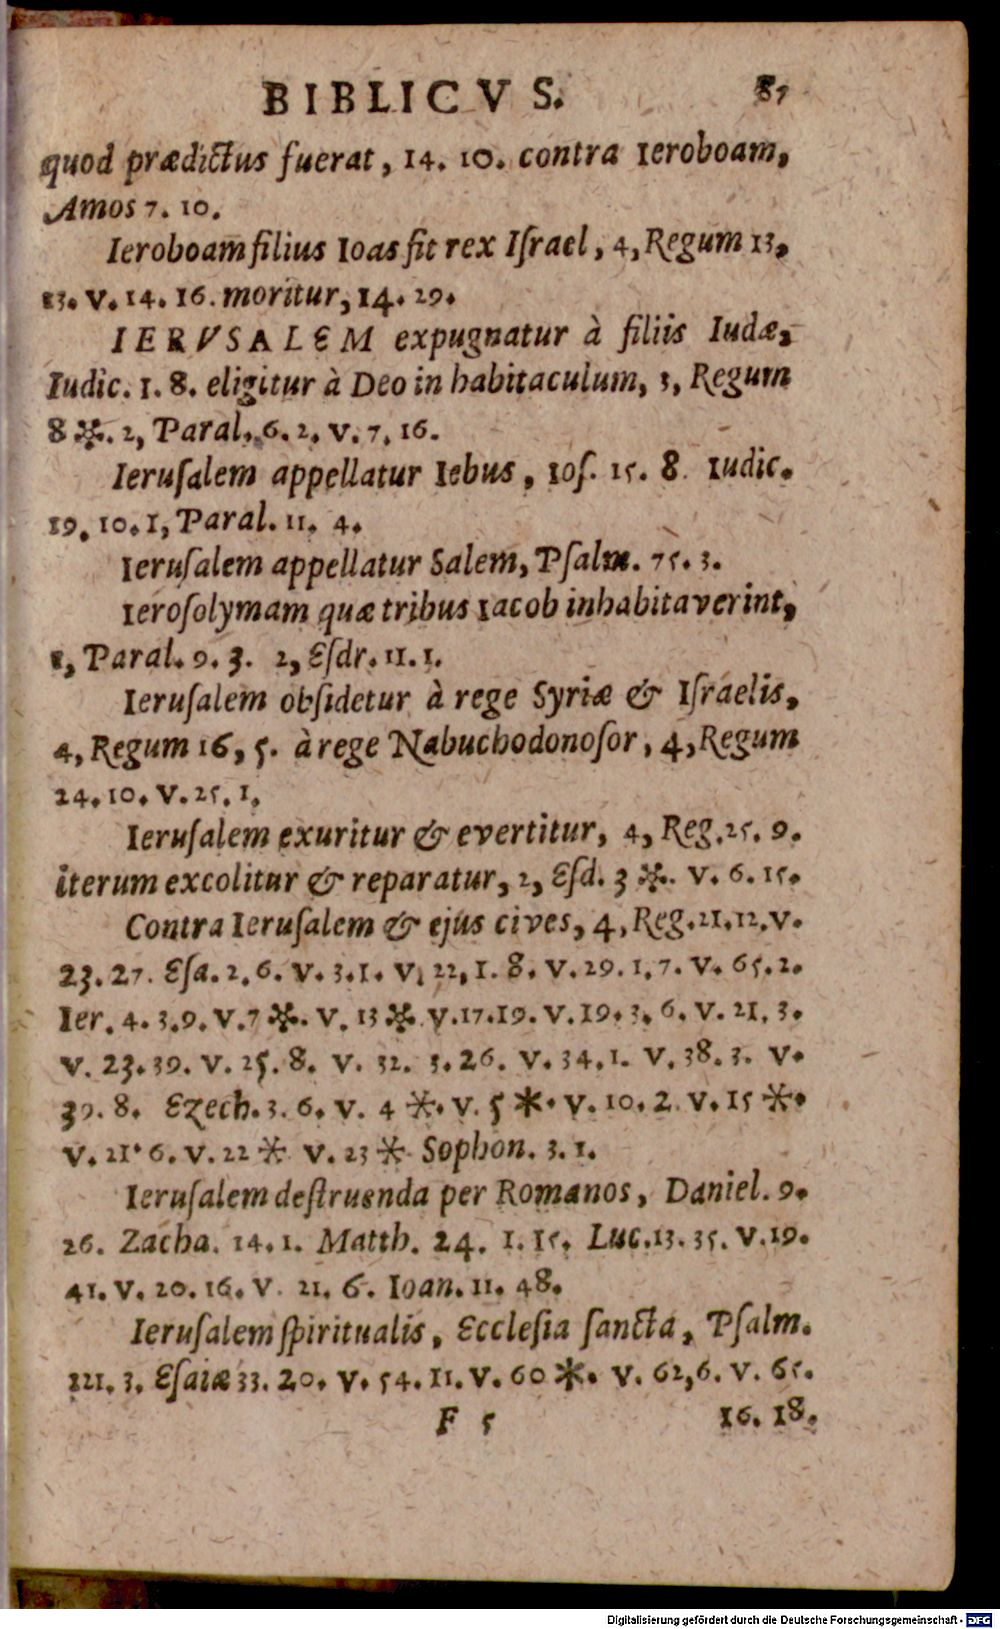 BIBLICVS. 87
quod prædictus fuerat, 14. 10. contra Ieroboam,
Amos 7. 10.
Ieroboam filius Ioas fit rex Iſrael, 4, Regum 13,
13. v. 14. 16. moritur, 14. 29.
IERVSALEM expugnatur à filiis Iudæ,
Iudic. 1. 8. eligitur à Deo in habitaculum, 3, Regum
8 *. 2, Paral. 6. 2. v. 7, 16.
Ieruſalem appellatur Iebus, Ioſ. 15. 8. Iudic.
19. 10. 1, Paral. 11. 4.
Ieruſalem appellatur Salem, Pſalm. 75. 3.
Ieroſolymam quæ tribus Iacob inhabitaverint,
1, Paral. 9. 3. 2, Eſdr. 11. 1.
Ieruſalem obſidetur à rege Syriæ & Iſraelis,
4, Regum 16, 5. à rege Nabuchodonoſor, 4, Regum
24. 10. v. 25. 1.
Ieruſalem exuritur & evertitur, 4, Reg. 25. 9.
iterum excolitur & reparatur, 2, Eſd. 3 *. v. 6. 15.
Contra Ieruſalem & ejus cives, 4, Reg. 21. 12. v.
23. 27. Eſa. 2. 6. v. 3. 1. v. 22, 1. 8. v. 29. 1. 7. v. 65. 2.
Ier. 4. 3. 9. v. 7 *. v. 13 * v. 17. 19. v. 19. 3. 6. v. 21. 3.
v. 23. 39. v. 25. 8. v. 32. 3. 26. v. 34. 1. v. 38. 3. v.
39. 8. Ezech. 3. 6. v. 4 *. v. 5 *. v. 10. 2. v. 15 *.
v. 21. 6. v. 22 * v. 23 * Sophon. 3. 1.
Ieruſalem deſtruenda per Romanos, Daniel. 9.
26. Zacha. 14. 1. Matth. 24. 1. 15. Luc. 13. 35. v. 19.
41. v. 20. 16. v. 21. 6. Ioan. 11. 48.
Ieruſalem ſpiritualis, Eccleſia ſancta, Pſalm.
121. 3. Eſaiæ 33. 20. v. 54. 11. v. 60 *. v. 62, 6. v. 65.
F 5 16. 18.
Digitalisierung gefördert durch die Deutsche Forschungsgemeinschaft - DFG